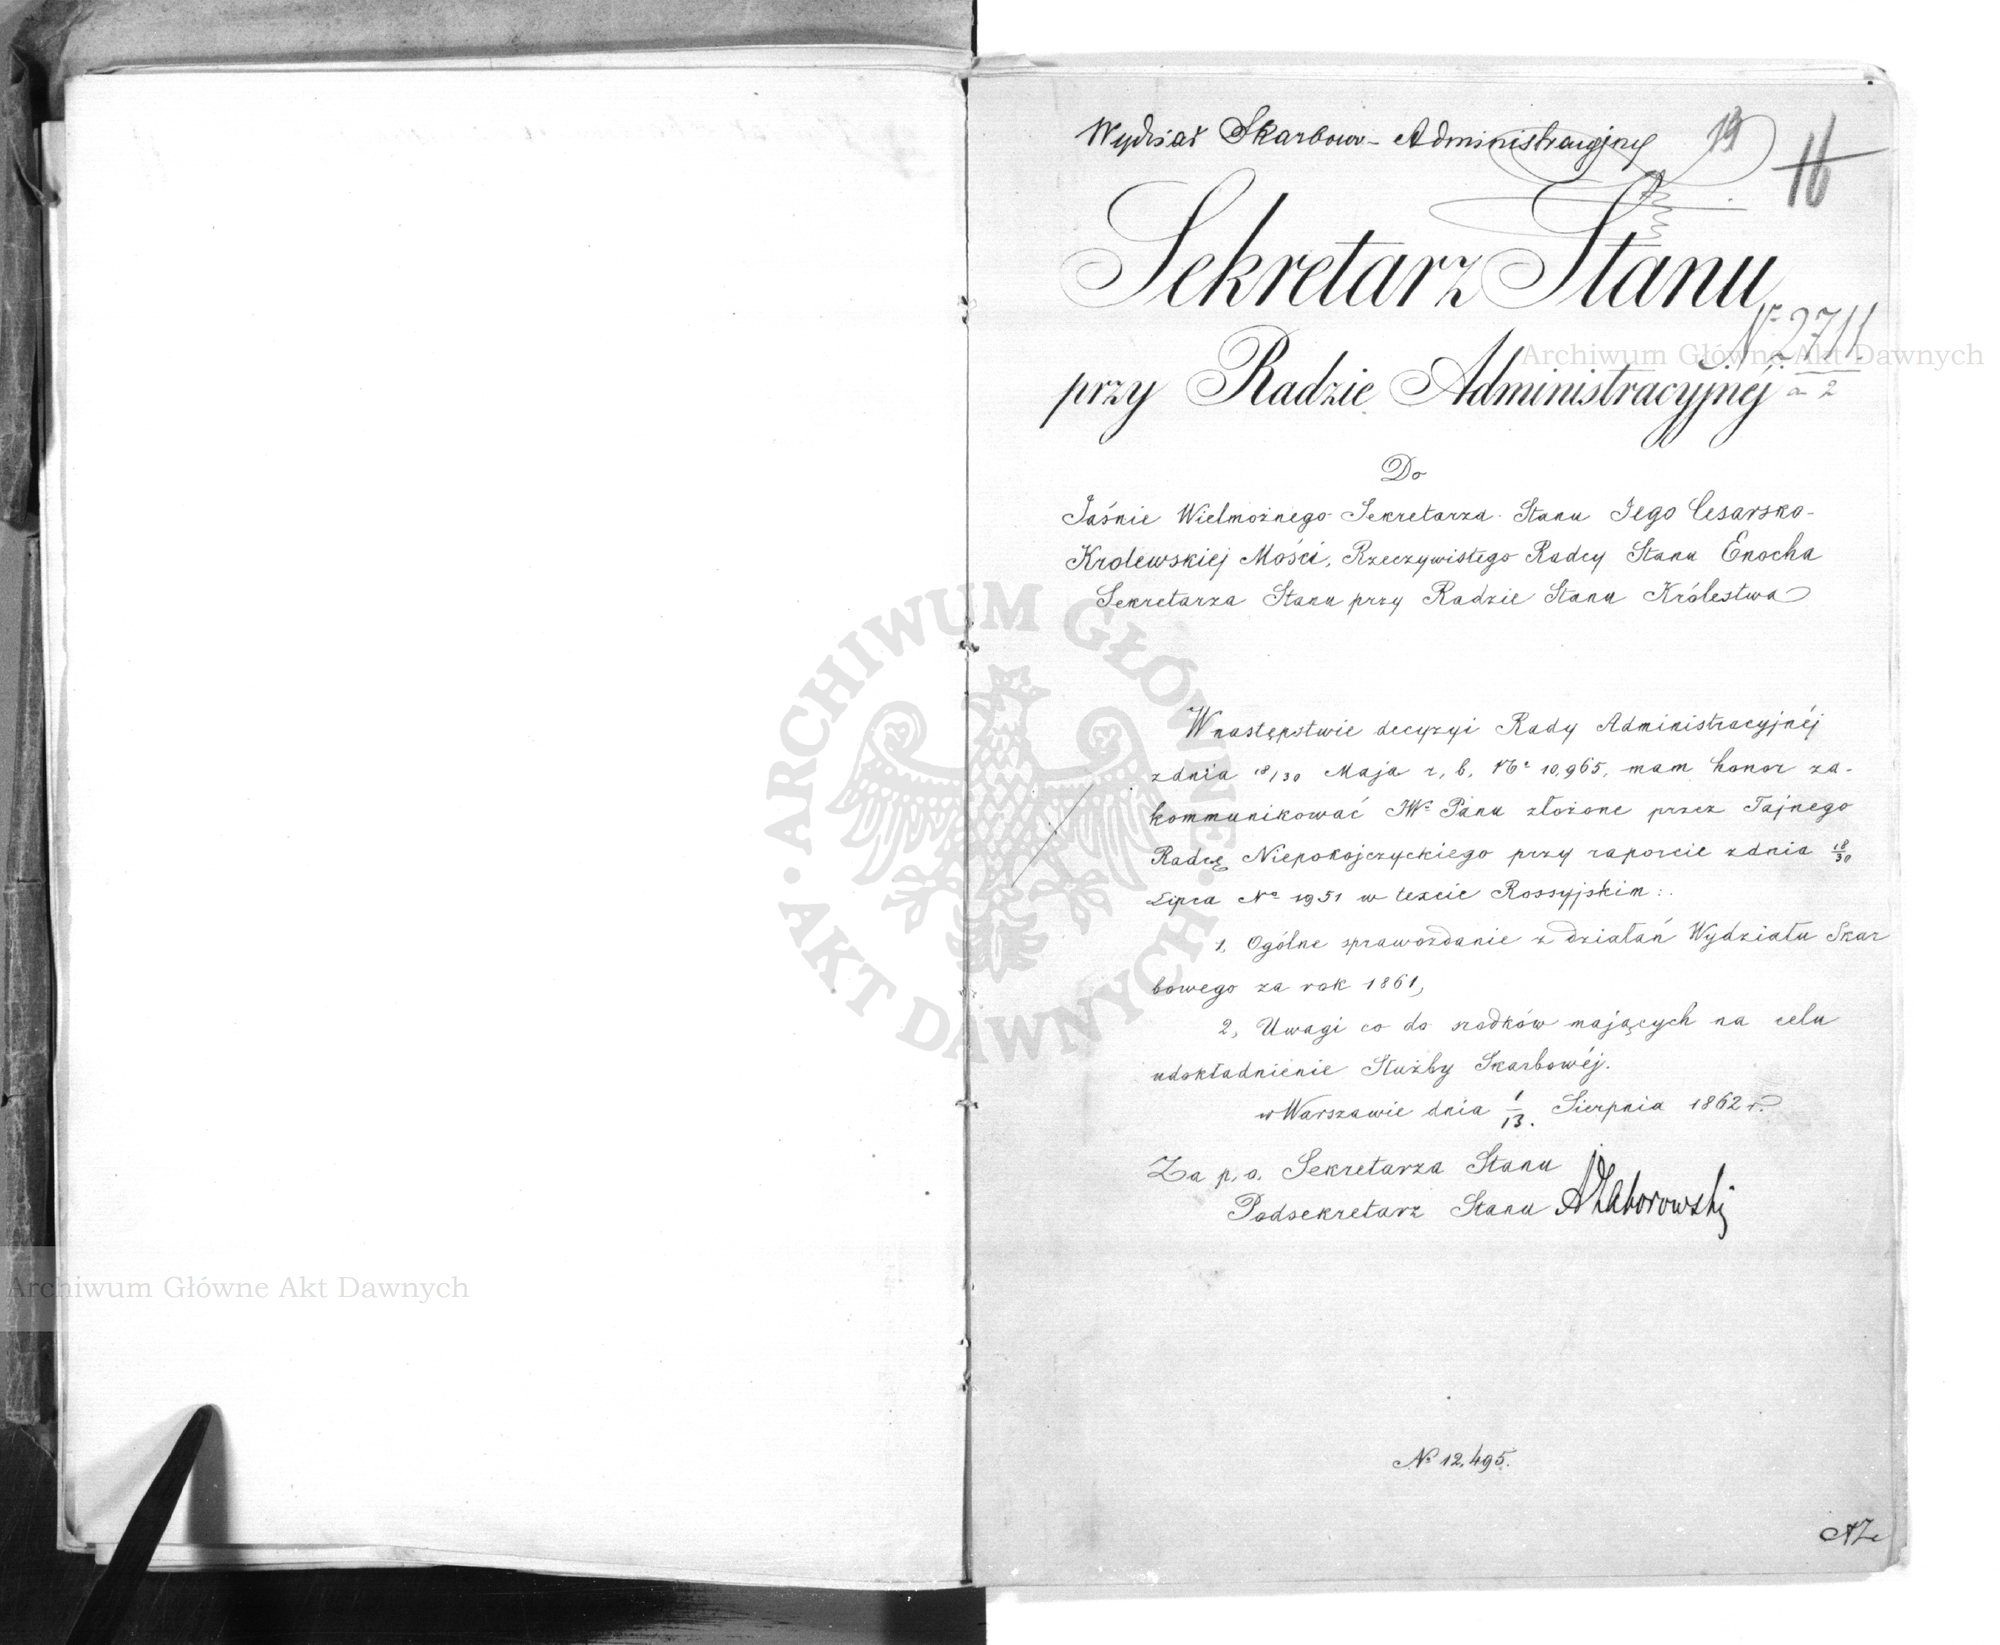 Wydział Skarbowo-Administracyjny
19
16
Sekretarz Stanu
Nr 2711
a 2
przy Radzie Administracyjnéj
Do
Jaśnie Wielmożnego Sekretarza Stanu Jego Cesarsko-
Krolewskiej Mości, Rzeczywistego Radcy Stanu Enocha
Sekretarza Stanu przy Radzie Stanu Królestwa
W następstwie decyzyi Rady Administracyjnéj
z dnia 18/30 Maja r, b, No 10,965, mam honor za-
kommunikować JWo Panu złożone przez Tajnego
Radcę Niepokojczyckiego przy raporcie z dnia 18/30
Lipca No 1951 w texcie Rossyjskim:
1, Ogólne sprawozdanie z działań Wydziału Skar
bowego za rok 1861,
2, Uwagi co do srodków mających na celu
udokładnienie Służby Skarbowéj.
w Warszawie dnia 1/13. Sierpnia 1862 r.
Za p. o. Sekretarza Stanu
Podsekretarz Stanu AZaborowski
No 12,495.
Archiwum Główne Akt Dawnych
Archiwum Główne Akt Dawnych
ARCHIWUM GŁÓWNE · AKT DAWNYCH ·